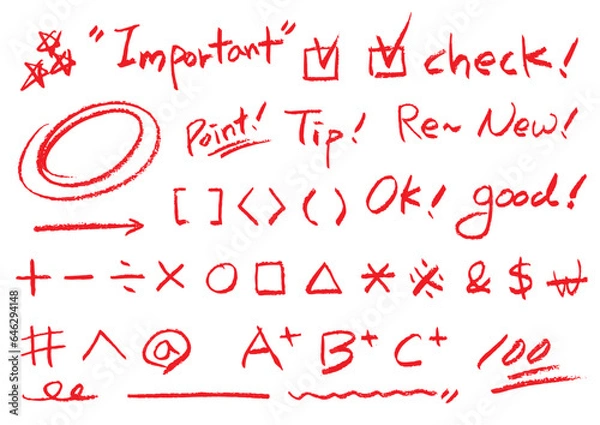 "Important" ☑ ☑ check!
Point! Tip! Re~ New!
[ ] < > ( ) Ok! good!
+ - ÷ × ○ □ △ * ※ & $ ₩
# ^ @ A+ B+ C+ 100
Adobe Stock | #646294148